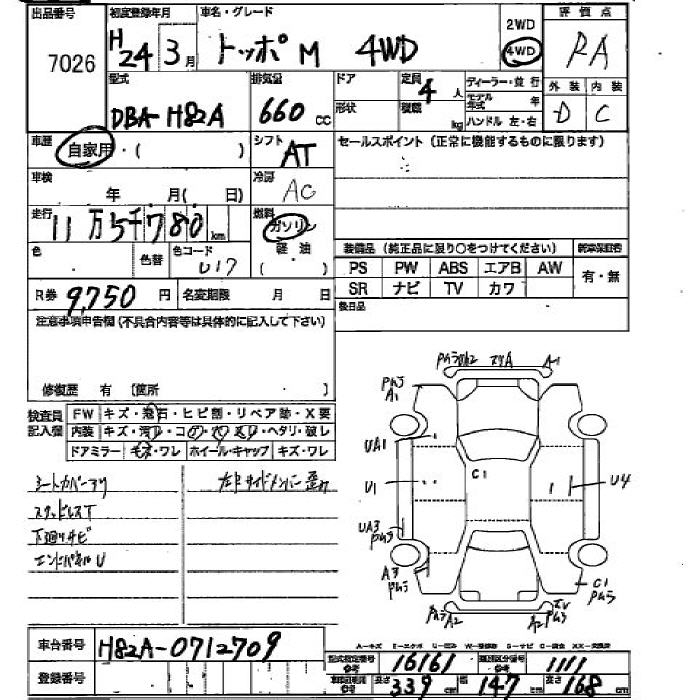 出品番号 初度登録年月 車名・グレード 2WD 評価点
7026 H24年 3月 トッポ M 4WD 4WD RA
型式 排気量 ドア 定員 4人 ディーラー・並行 外装 内装
DBA-H82A 660cc 形状 積載 kg モデル年式 年 D C
ハンドル 左・右
車歴 自家用・( ) シフト AT セールスポイント (正常に機能するものに限ります)
車検 年 月( 日) 冷房 AC
走行 11万5千780km 燃料 ガソリン
軽・油
( )
色 色替 色コード U17
装備品 (純正品に限り○をつけてください) 新車保証書
PS PW ABS エアB AW 有・無
SR ナビ TV カワ
R券 9,750円 名変期限 月 日 後日品
注意事項申告欄 (不具合内容等は具体的に記入して下さい)
修復歴 有 (箇所 )
検査員記入欄 FW キズ・飛石・ヒビ割・リペア跡・X要
内装 キズ・汚レ・コゲ・穴・スレ・ヘタリ・破レ
ドアミラー キズ・ワレ ホイール・キャップ キズ・ワレ
シートカバーアリ 左F サイドメンバー歪み
スタッドレスT
下廻りサビ
エンドパネルU
A1
A1
UA1
U1 C1 U4
UA3
A3 C1
A2 A2
車台番号 H82A-0712709
登録番号
型式指定番号 参考 16161 類別区分番号 参考 1111
長さ 339cm 幅 147cm 高さ 168cm